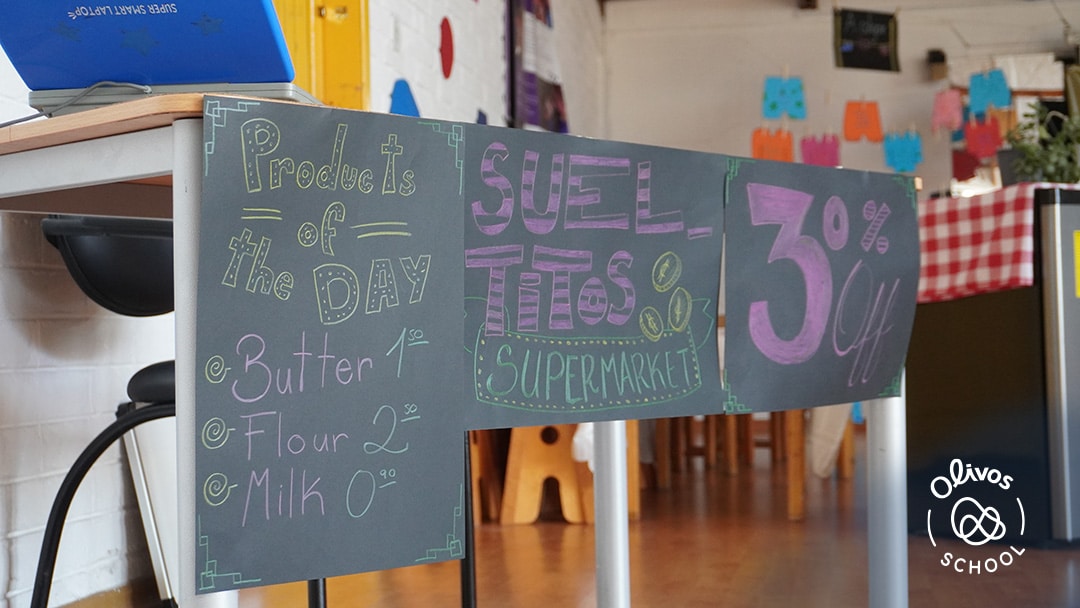 SUPER SMART LAPTOP
Products
of
the DAY
Butter 1.50
Flour 2.50
Milk 0.90
SUEL_
TiTOS
SUPERMARKET
30%
Off
Olivos
SCHOOL